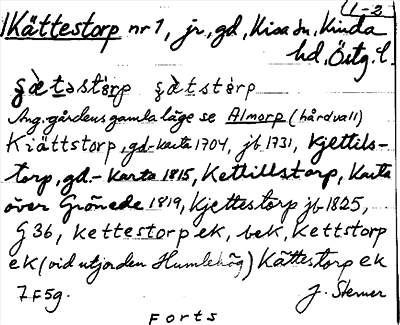 1-2
Kättestorp nr 1, jr, gd, Kisa sn, Kinda
hd, Östg. l.
şæ̀təstèrp şæ̀tstèrp
Ang. gårdens gamla läge se Almorp (hårdvall)
Kiättstorp, gd-karta 1704, jb 1731, Kjettils-
torp, gd.-karta 1815, Kettillstorp, Karta
över Grönede 1819, Kjettestorp jb 1825,
G 36, Kettestorp ek, bek, Kettstorp
ek (vid utjorden Humlehög) Kättestorp ek
7F5g. J. Sterner
Forts